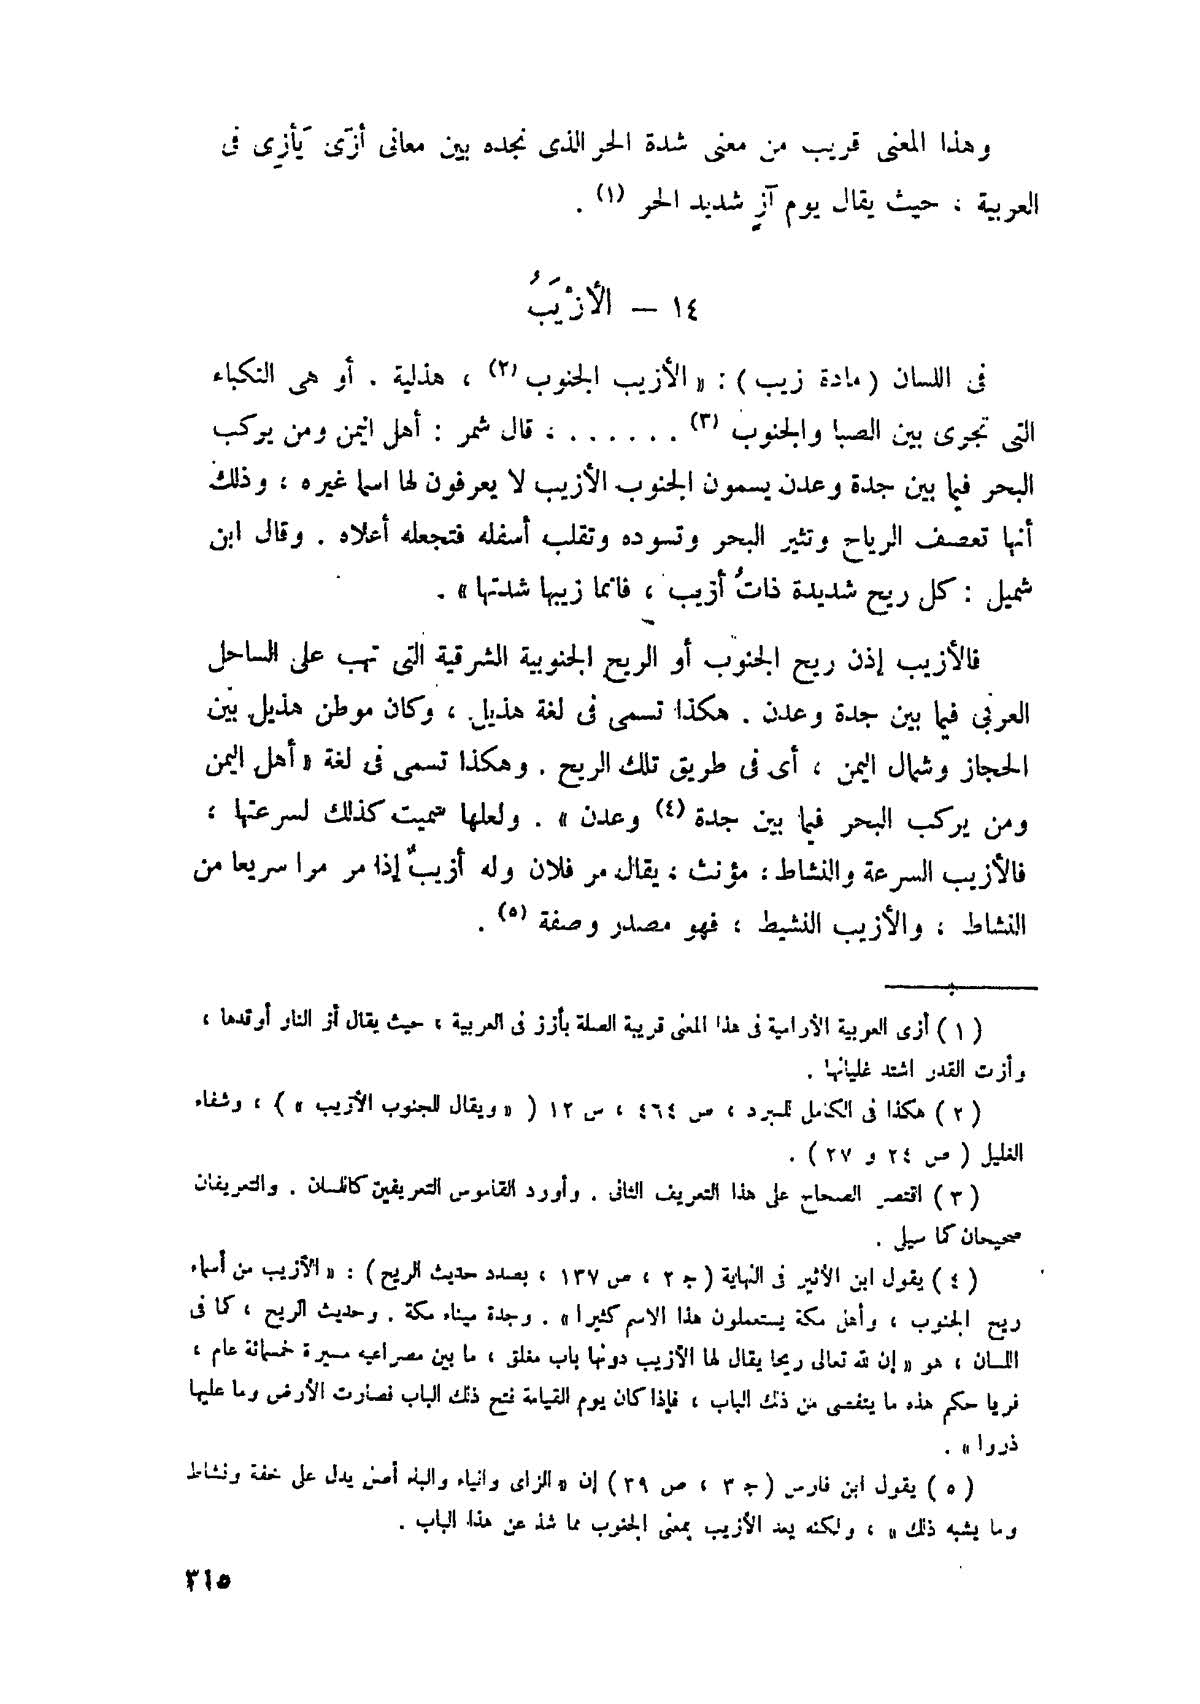 وهذا المعنى قريب من معنى شدة الحر الذى نجده بين معانى أزَى يَأزِى فى
العربية ، حيث يقال يوم آزٍ شديد الحر (١) .
١٤ — الأزْيَبُ
فى اللسان (مادة زيب) : « الأزيب الجنوب (٢) ، هذلية . أو هى النكباء
التى تجرى بين الصبا والجنوب (٣) . . . . . . ، قال شمر : أهل اليمن ومن يركب
البحر فيما بين جدة وعدن يسمون الجنوب الأزيب لا يعرفون لها اسما غيره ، وذلك
أنها تعصف الرياح وتثير البحر وتسوده وتقلب أسفله فتجعله أعلاه . وقال ابن
شميل : كل ريح شديدة ذاتُ أزيب ، فانما زيبها شدتها » .
فالأزيب إذن ريح الجنوب أو الريح الجنوبية الشرقية التى تهب على الساحل
العربى فيما بين جدة وعدن . هكذا تسمى فى لغة هذيل ، وكان موطن هذيل بين
الحجاز وشمال اليمن ، أى فى طريق تلك الريح . وهكذا تسمى فى لغة « أهل اليمن
ومن يركب البحر فيما بين جدة (٤) وعدن » . ولعلها سميت كذلك لسرعتها ؛
فالأزيب السرعة والنشاط ؛ مؤنث ؛ يقال مر فلان وله أزيبٌ إذا مر مرا سريعا من
النشاط ؛ والأزيب النشيط ؛ فهو مصدر وصفة (٥) .
(١) أزى العربية الأرامية فى هذا المعنى قريبة الصلة بأزز فى العربية ، حيث يقال أز النار أوقدها ،
وأزت القدر اشتد غليانها .
(٢) هكذا فى الكامل للمبرد ، ص ٤٦٤ ، س ١٢ ( « ويقال للجنوب الأزيب » ) ، وشفاء
الغليل ( ص ٢٤ و ٢٧ ) .
(٣) اقتصر الصحاح على هذا التعريف الثانى . وأورد القاموس التعريفين كاللسان . والتعريفان
صحيحان كما سيلى .
(٤) يقول ابن الأثير فى النهاية (ج ٢ ، ص ١٣٧ ، بصدد حديث الريح) : « الأزيب من أسماء
ريح الجنوب ، وأهل مكة يستعملون هذا الاسم كثيرا » . وجدة ميناء مكة . وحديث الريح ، كما فى
اللسان ، هو « إن لله تعالى ريحا يقال لها الأزيب دونها باب مغلق ، ما بين مصراعيه مسيرة خمسمائة عام ،
فرياحكم هذه ما يتفصى من ذلك الباب ، فإذا كان يوم القيامة فتح ذلك الباب فصارت الأرض وما عليها
ذروا » .
(٥) يقول ابن فارس (ج ٣ ، ص ٣٩) إن « الزاى والياء والباء أصل يدل على خفة ونشاط
وما يشبه ذلك » ، ولكنه يعد الأزيب بمعنى الجنوب مما شذ عن هذا الباب .
٣١٥